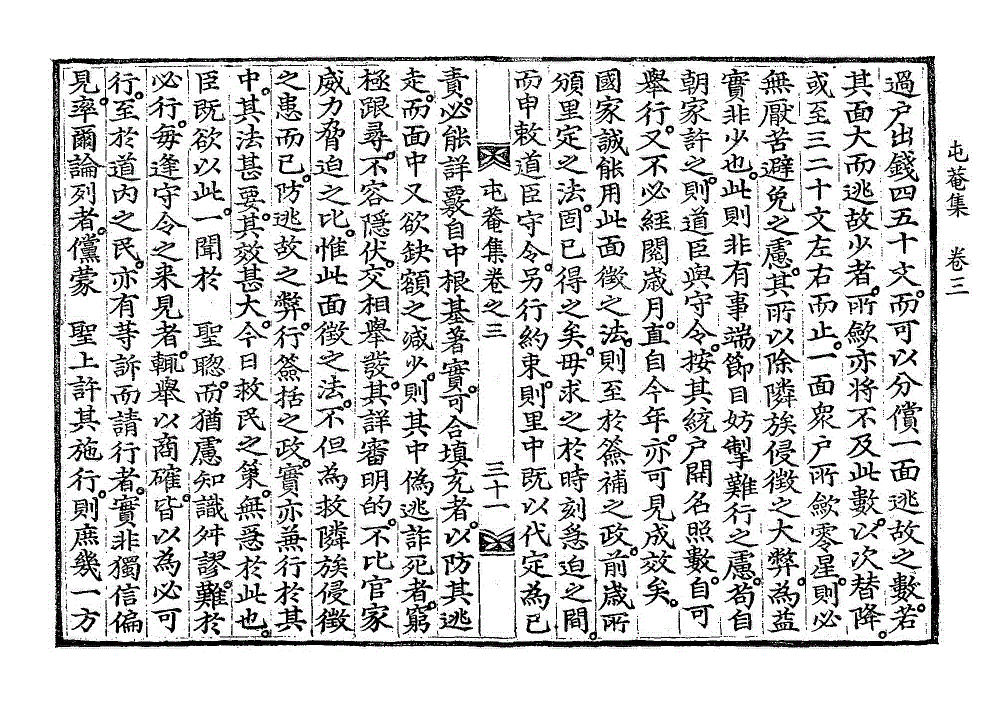 屯菴集　卷三
過户出錢四五十文。而可以分償一面逃故之數。若
其面大而逃故少者。所斂亦將不及此數。以次替降。
或至三二十文左右而止。一面衆户所斂零星。則必
無厭苦避免之慮。其所以除隣族侵徵之大弊。為益
實非少也。此則非有事端節目妨掣難行之慮。苟自
朝家許之。則道臣與守令。按其統户開名照數。自可
舉行。又不必經閱歲月。直自今年。亦可見成效矣。
國家誠能用此面徵之法。則至於簽補之政。前歲所
頒里定之法。固已得之矣。毋求之於時刻急迫之間。
而申敕道臣守令。另行約束。則里中既以代定為已
屯菴集卷之三　三十一
責。必能詳覈自中根基著實。可合填充者。以防其逃
走。而面中又欲缺額之减少。則其中偽逃詐死者。窮
極跟尋。不容隱伏。交相舉發。其詳審明的。不比官家
威力脅迫之比。惟此面徵之法。不但為救隣族侵徵
之患而已。防逃故之弊。行簽括之政。實亦兼行於其
中。其法甚要。其效甚大。今日救民之策。無急於此也。
臣既欲以此。一聞於　聖聰。而猶慮知識舛謬。難於
必行。每逢守令之来見者。輒舉以商確。皆以為必可
行。至於道内之民。亦有等訴而請行者。實非獨信偏
見。率爾論列者。儻蒙　聖上許其施行。則庶幾一方